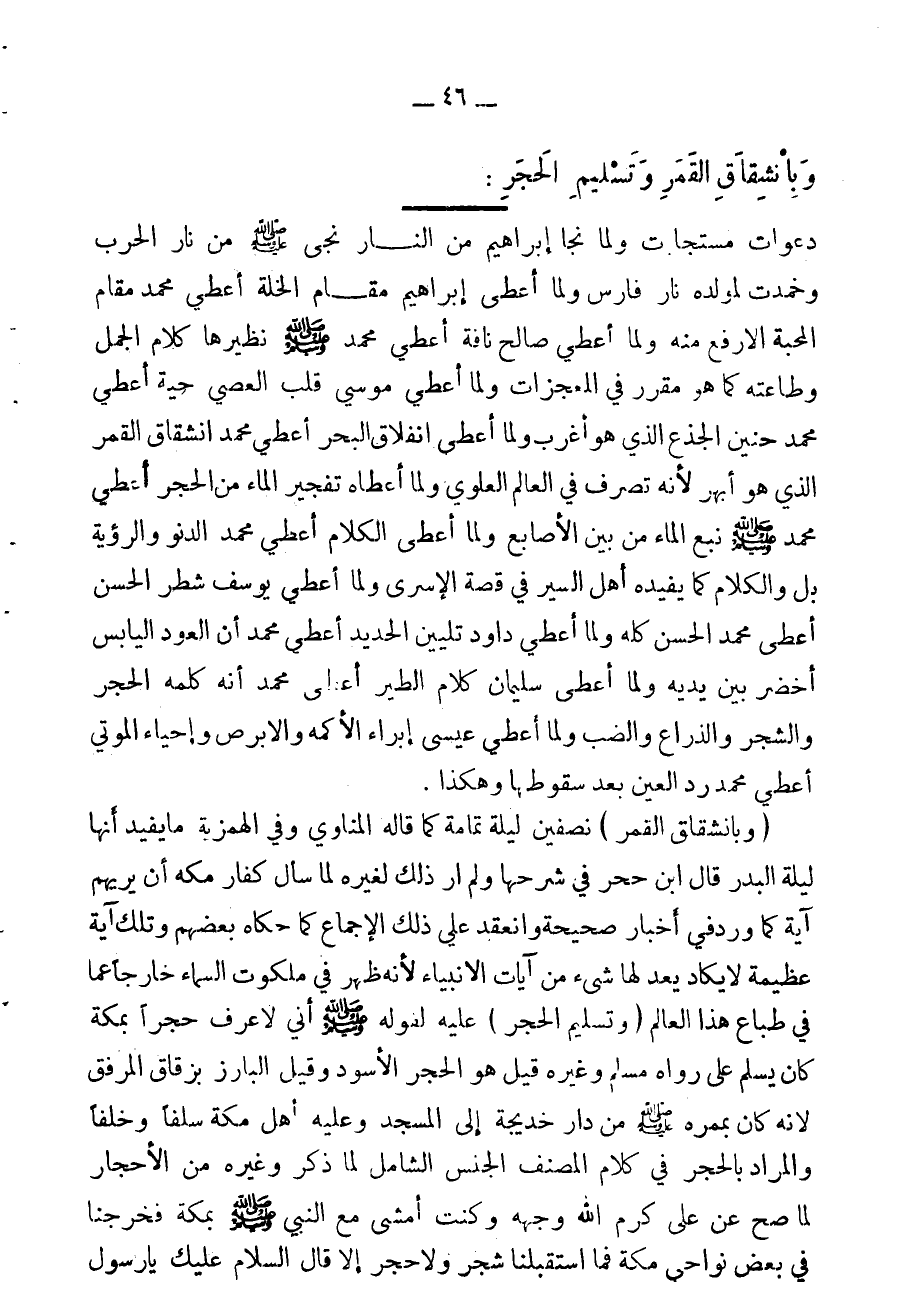 ـ ٤٦ ـ
وَبِانْشِقَاقِ القَمَرِ وَتَسْلِيمِ الحَجَرِ :
دعوات مستجابت ولما نجا إبراهيم من النـــار نجى ﷺ من نار الحرب
وخمدت لمولده نار فارس ولما أعطى إبراهيم مقـــام الخلة أعطي محمد مقام
المحبة الارفع منه ولما أعطي صالح نافة أعطي محمد ﷺ نظيرها كلام الجمل
وطاعته كما هو مقرر في المعجزات ولما أعطي موسي قلب العصي حية أعطي
محمد حنين الجذع الذي هو أغرب ولما أعطى انفلاق البحر أعطي محمد انشقاق القمر
الذي هو أبهر لأنه تصرف في العالم العلوي ولما أعطاه تفجير الماء من الحجر أعطي
محمد ﷺ نبع الماء من بين الأصابع ولما أعطى الكلام أعطي محمد الدنو والرؤية
بل والكلام كما يفيده أهل السير في قصة الإسرى ولما أعطي يوسف شطر الحسن
أعطى محمد الحسن كله ولما أعطي داود تليين الحديد أعطي محمد أن العود اليابس
أخضر بين يديه ولما أعطى سليمان كلام الطير أعطى محمد أنه كلمه الحجر
والشجر والذراع والضب ولما أعطي عيسى إبراء الأكمه والابرص وإحياء الموتي
أعطي محمد رد العين بعد سقوطها وهكذا .
( وبانشقاق القمر ) نصفين ليلة تمامة كما قاله المناوي وفي الهمزية مايفيد أنها
ليلة البدر قال ابن حجر في شرحها ولم ار ذلك لغيره لما سأل كفار مكه أن يريهم
آية كما وردفي أخبار صحيحة وانعقد علي ذلك الإجماع كما حكاه بعضهم وتلك آية
عظيمة لايكاد يعد لها شيء من آيات الانبياء لأنه ظهر في ملكوت السماء خارجاً عما
في طباع هذا العالم ( وتسليم الحجر ) عليه لقوله ﷺ أني لاعرف حجراً بمكة
كان يسلم على رواه مسلم وغيره قيل هو الحجر الأسود وقيل البارز بزقاق المرفق
لانه كان بممره ﷺ من دار خديجة إلى المسجد وعليه أهل مكة سلفاً وخلفاً
والمراد بالحجر في كلام المصنف الجنس الشامل لما ذكر وغيره من الأحجار
لما صح عن على كرم الله وجهه وكنت أمشى مع النبي ﷺ بمكة فخرجنا
في بعض نواحي مكة فما استقبلنا شجر ولاحجر إلا قال السلام عليك يارسول